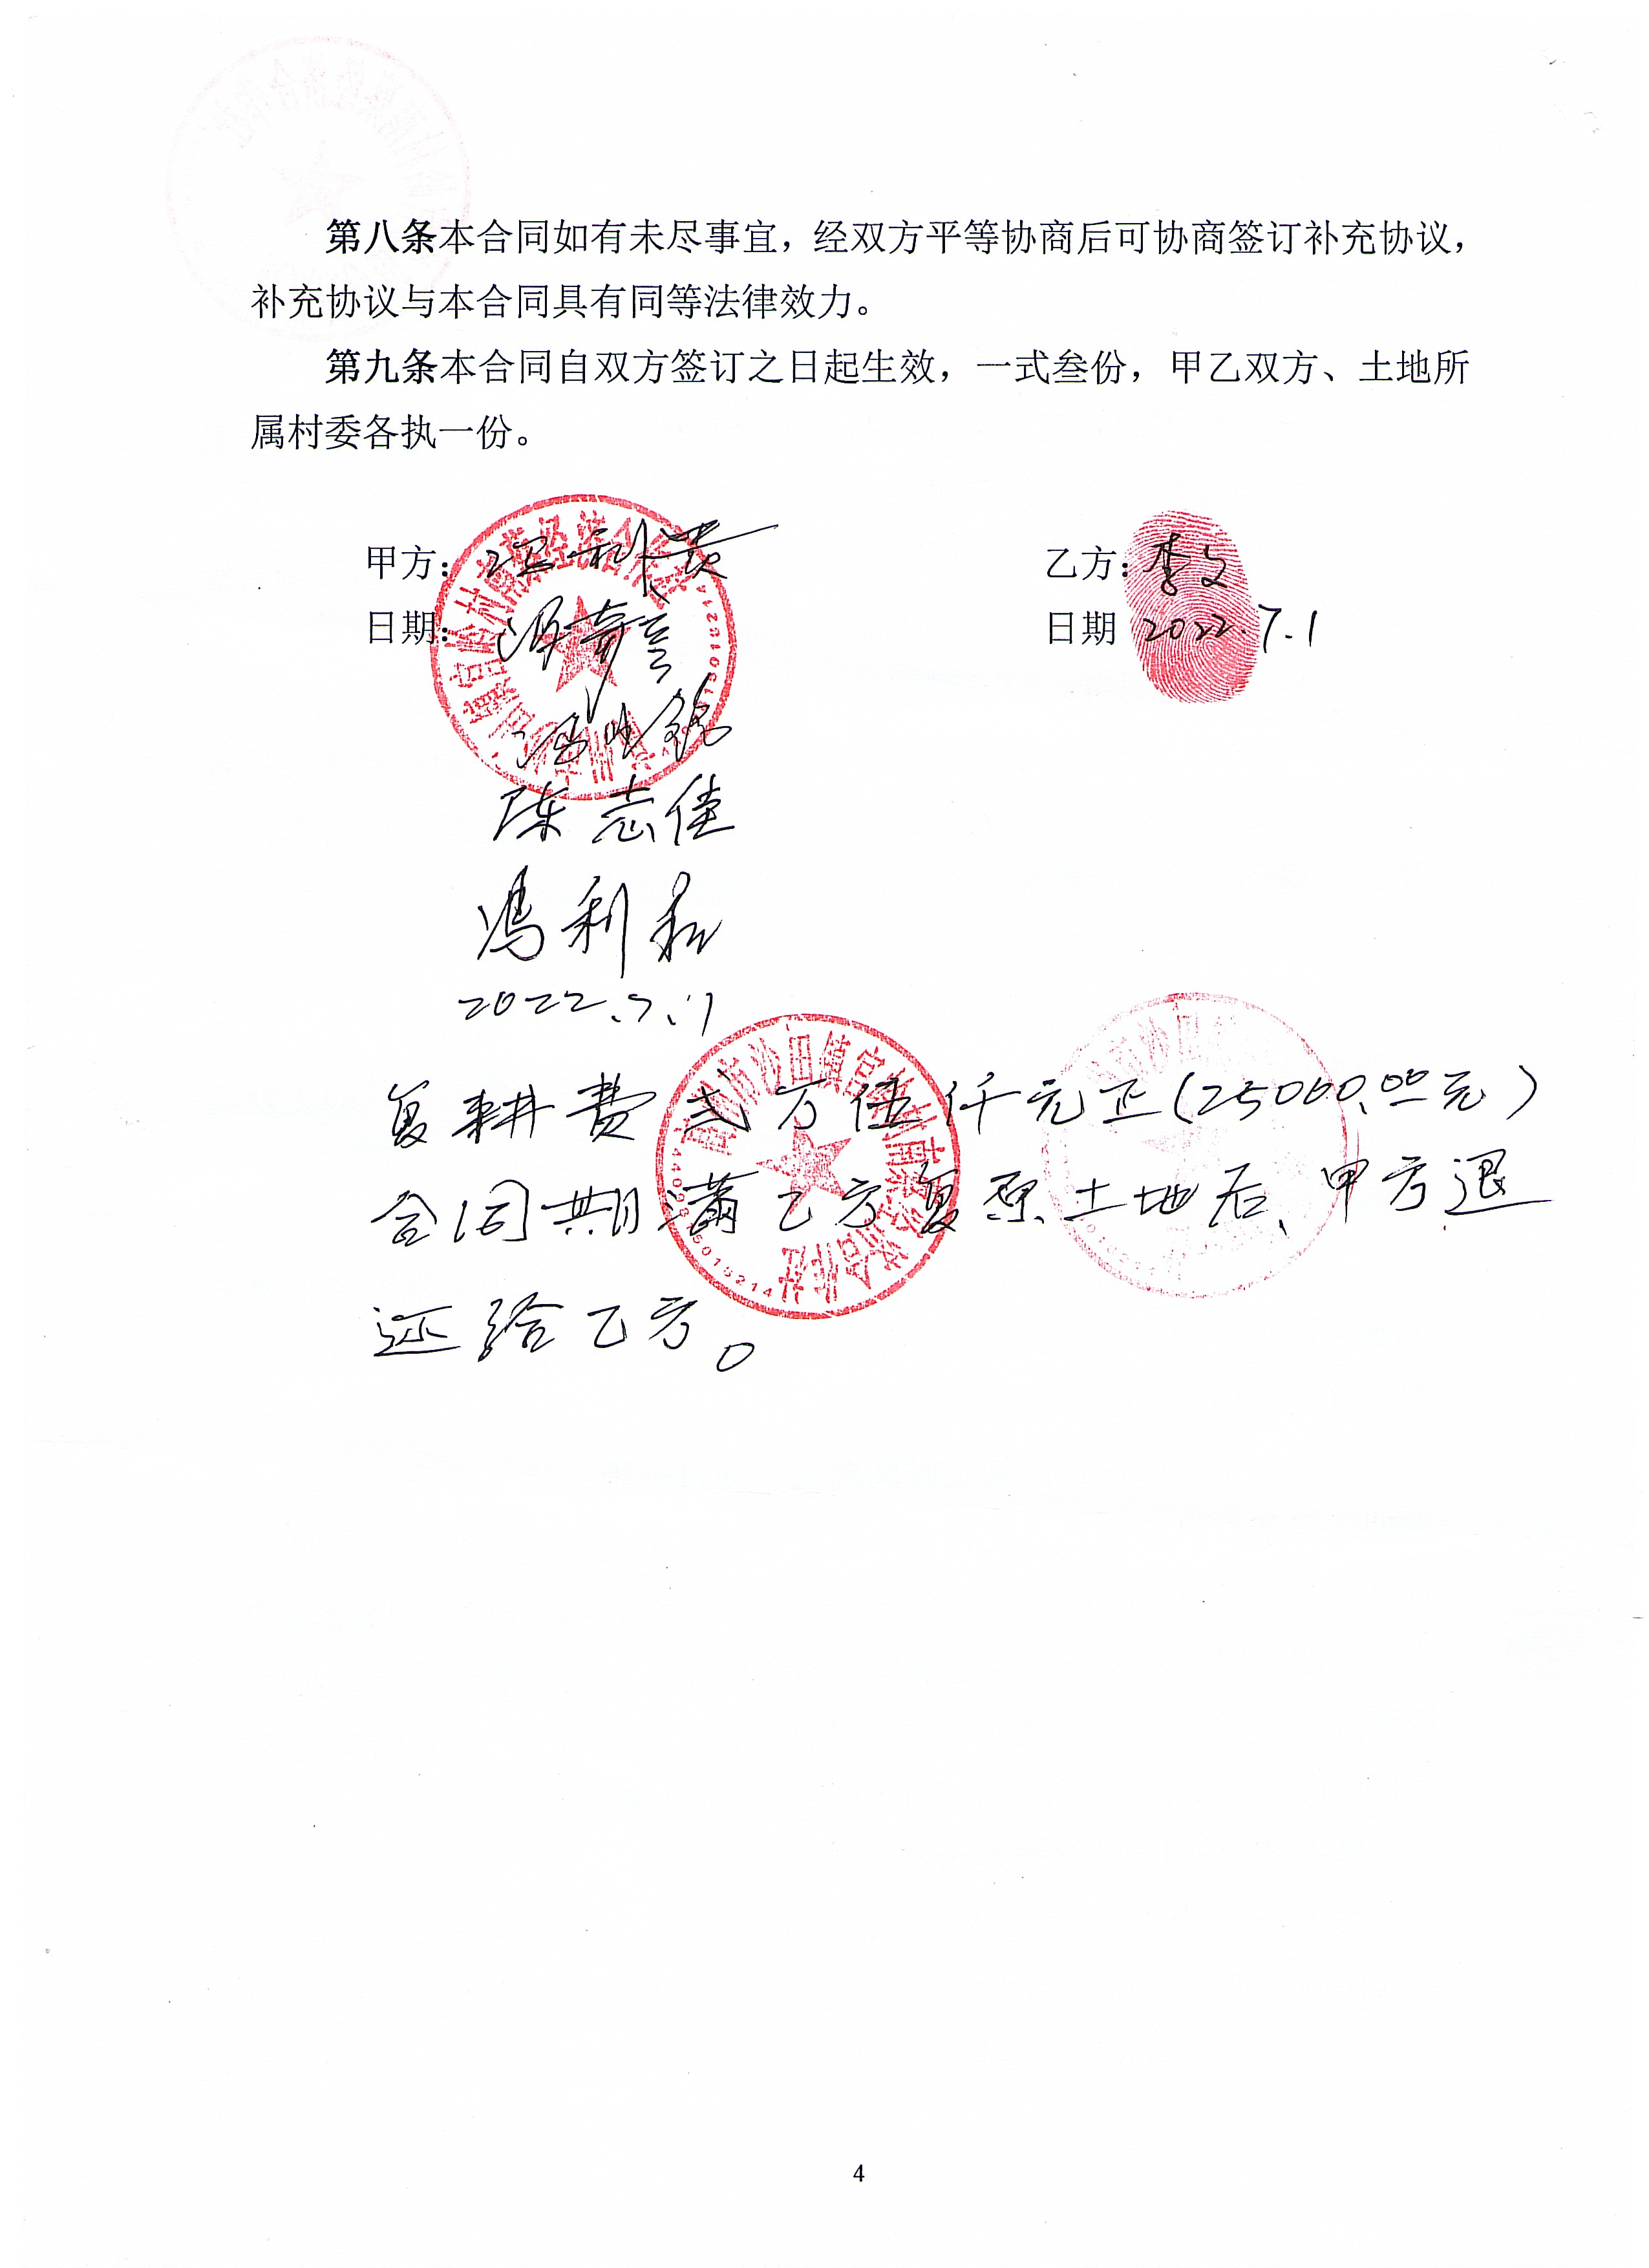 第八条本合同如有未尽事宜，经双方平等协商后可协商签订补充协议，
补充协议与本合同具有同等法律效力。
第九条本合同自双方签订之日起生效，一式叁份，甲乙双方、土地所
属村委各执一份。
甲方：
乙方：李文
日期：
日期 2022.7.1
陈志佳
冯利和
2022.7.1
复耕费弍万伍仟元正(25000.00元)
合同期满乙方复原土地后、甲方退
还给乙方。
4